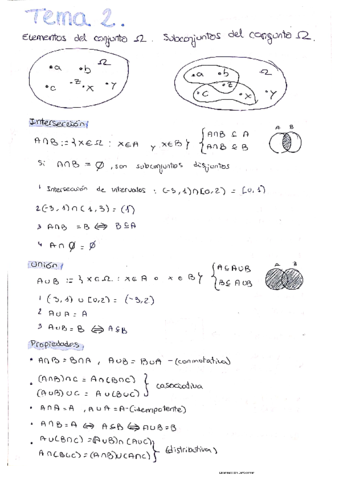 Tema 2.
Elementos del conjunto Ω. Subconjuntos del conjunto Ω.
•a •b Ω
•c •z •x •y
•a •b Ω
•c •z •x •y
Intersección:
A∩B := {x∈Ω : x∈A y x∈B} { A∩B ⊆ A
A∩B ⊆ B
A B
Si A∩B = ∅, son subconjuntos disjuntos
1 Intersección de intervalos: (-3,1)∩[0,2) = [0,1)
3 A∩B = B ⇔ B⊆A
4 A∩∅ = ∅
Unión:
A∪B := {x∈Ω : x∈A o x∈B} { A⊆A∪B
B⊆A∪B
A B
1 (-3,1) ∪ [0,2) = (-3,2)
2 A∪A = A
3 A∪B = B ⇔ A⊆B
Propiedades:
• A∩B = B∩A, A∪B = B∪A - (conmutativa)
• (A∩B)∩C = A∩(B∩C)
(A∪B)∪C = A∪(B∪C) } (asociativa)
• A∩A = A, A∪A = A - (idempotente)
• A∩B = A ⇔ A⊆B ⇔ A∪B = B
• A∪(B∩C) = (A∪B)∩(A∪C)
} (distributiva)